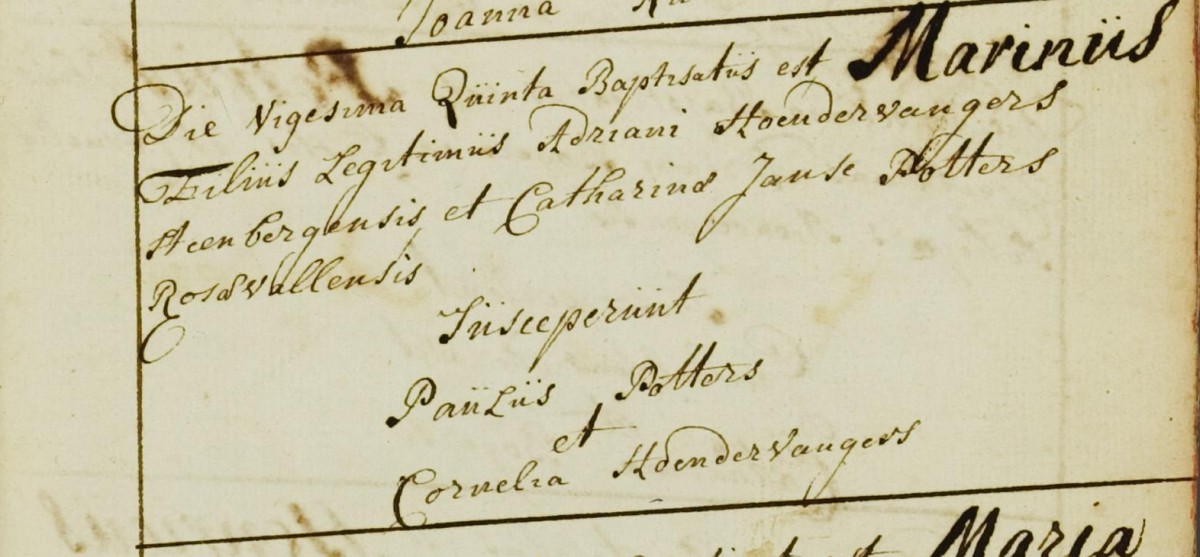 Joanna
Die Vigesima Quinta Baptisatus est Marinus
Filius Legitimus Adriani Hoendervangers
Steenbergensis et Catharinæ Janse Potters
Rosævallensis
Susceperunt
Paulus Potters
et
Cornelia Hoendervangers
Maria